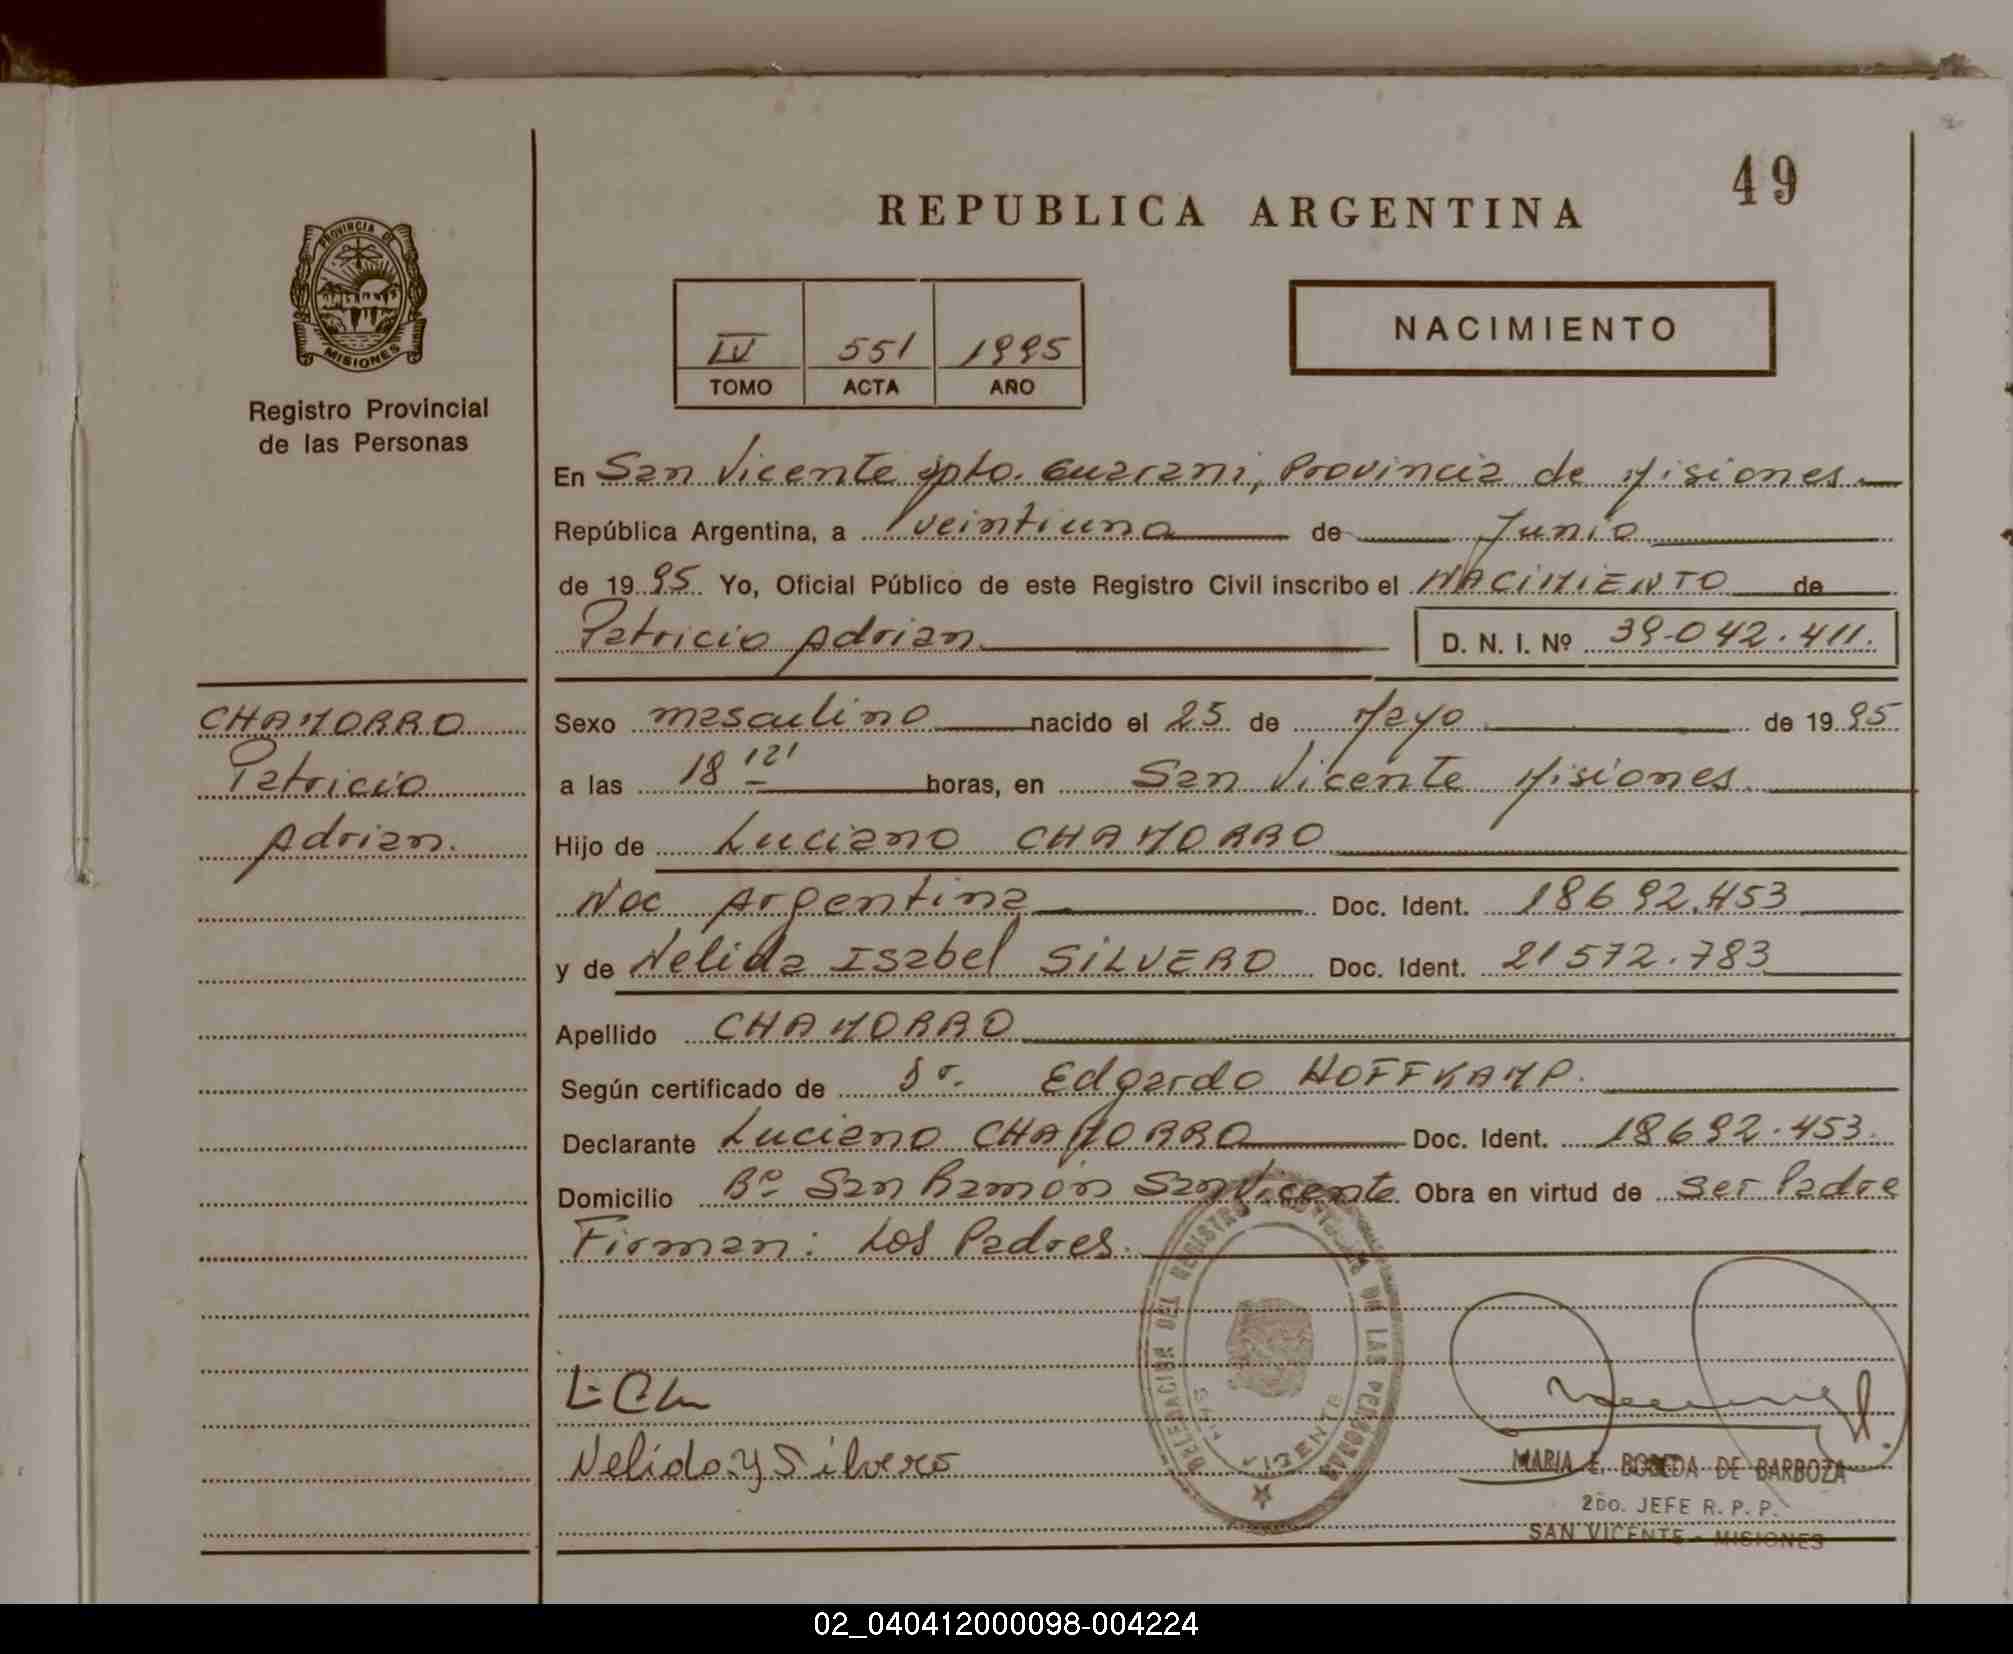 49
REPUBLICA ARGENTINA
PROVINCIA DE
MISIONES
Registro Provincial
de las Personas
IV 551 1995
TOMO ACTA AÑO
NACIMIENTO
En San Vicente Dpto. Guarani, Provincia de Misiones
República Argentina, a veintiuno de Junio
de 1995 Yo, Oficial Público de este Registro Civil inscribo el NACIMIENTO de
Patricio Adrian D. N. I. Nº 39.042.411.
CHAMORRO
Patricio
Adrian.
Sexo masculino nacido el 25 de Mayo de 1995
a las 18 horas, en San Vicente Misiones
Hijo de Luciano CHAMORRO
Nac Argentina Doc. Ident. 18692.453
y de Nelida Isabel SILVERO Doc. Ident. 21572.783
Apellido CHAMORRO
Según certificado de Dr. Edgardo HOFFKAMP.
Declarante Luciano CHAMORRO Doc. Ident. 18692.453.
Domicilio Bº San Ramon San Vicente Obra en virtud de ser Padre
Firman: Los Padres.
DELEGACION DEL REGISTRO DE LAS PERSONAS
SAN VICENTE
L. Ch
Nelida Y Silvero
MARIA E. BOBEDA DE BARBOZA
2DO. JEFE R. P. P.
SAN VICENTE - MISIONES
02_040412000098-004224